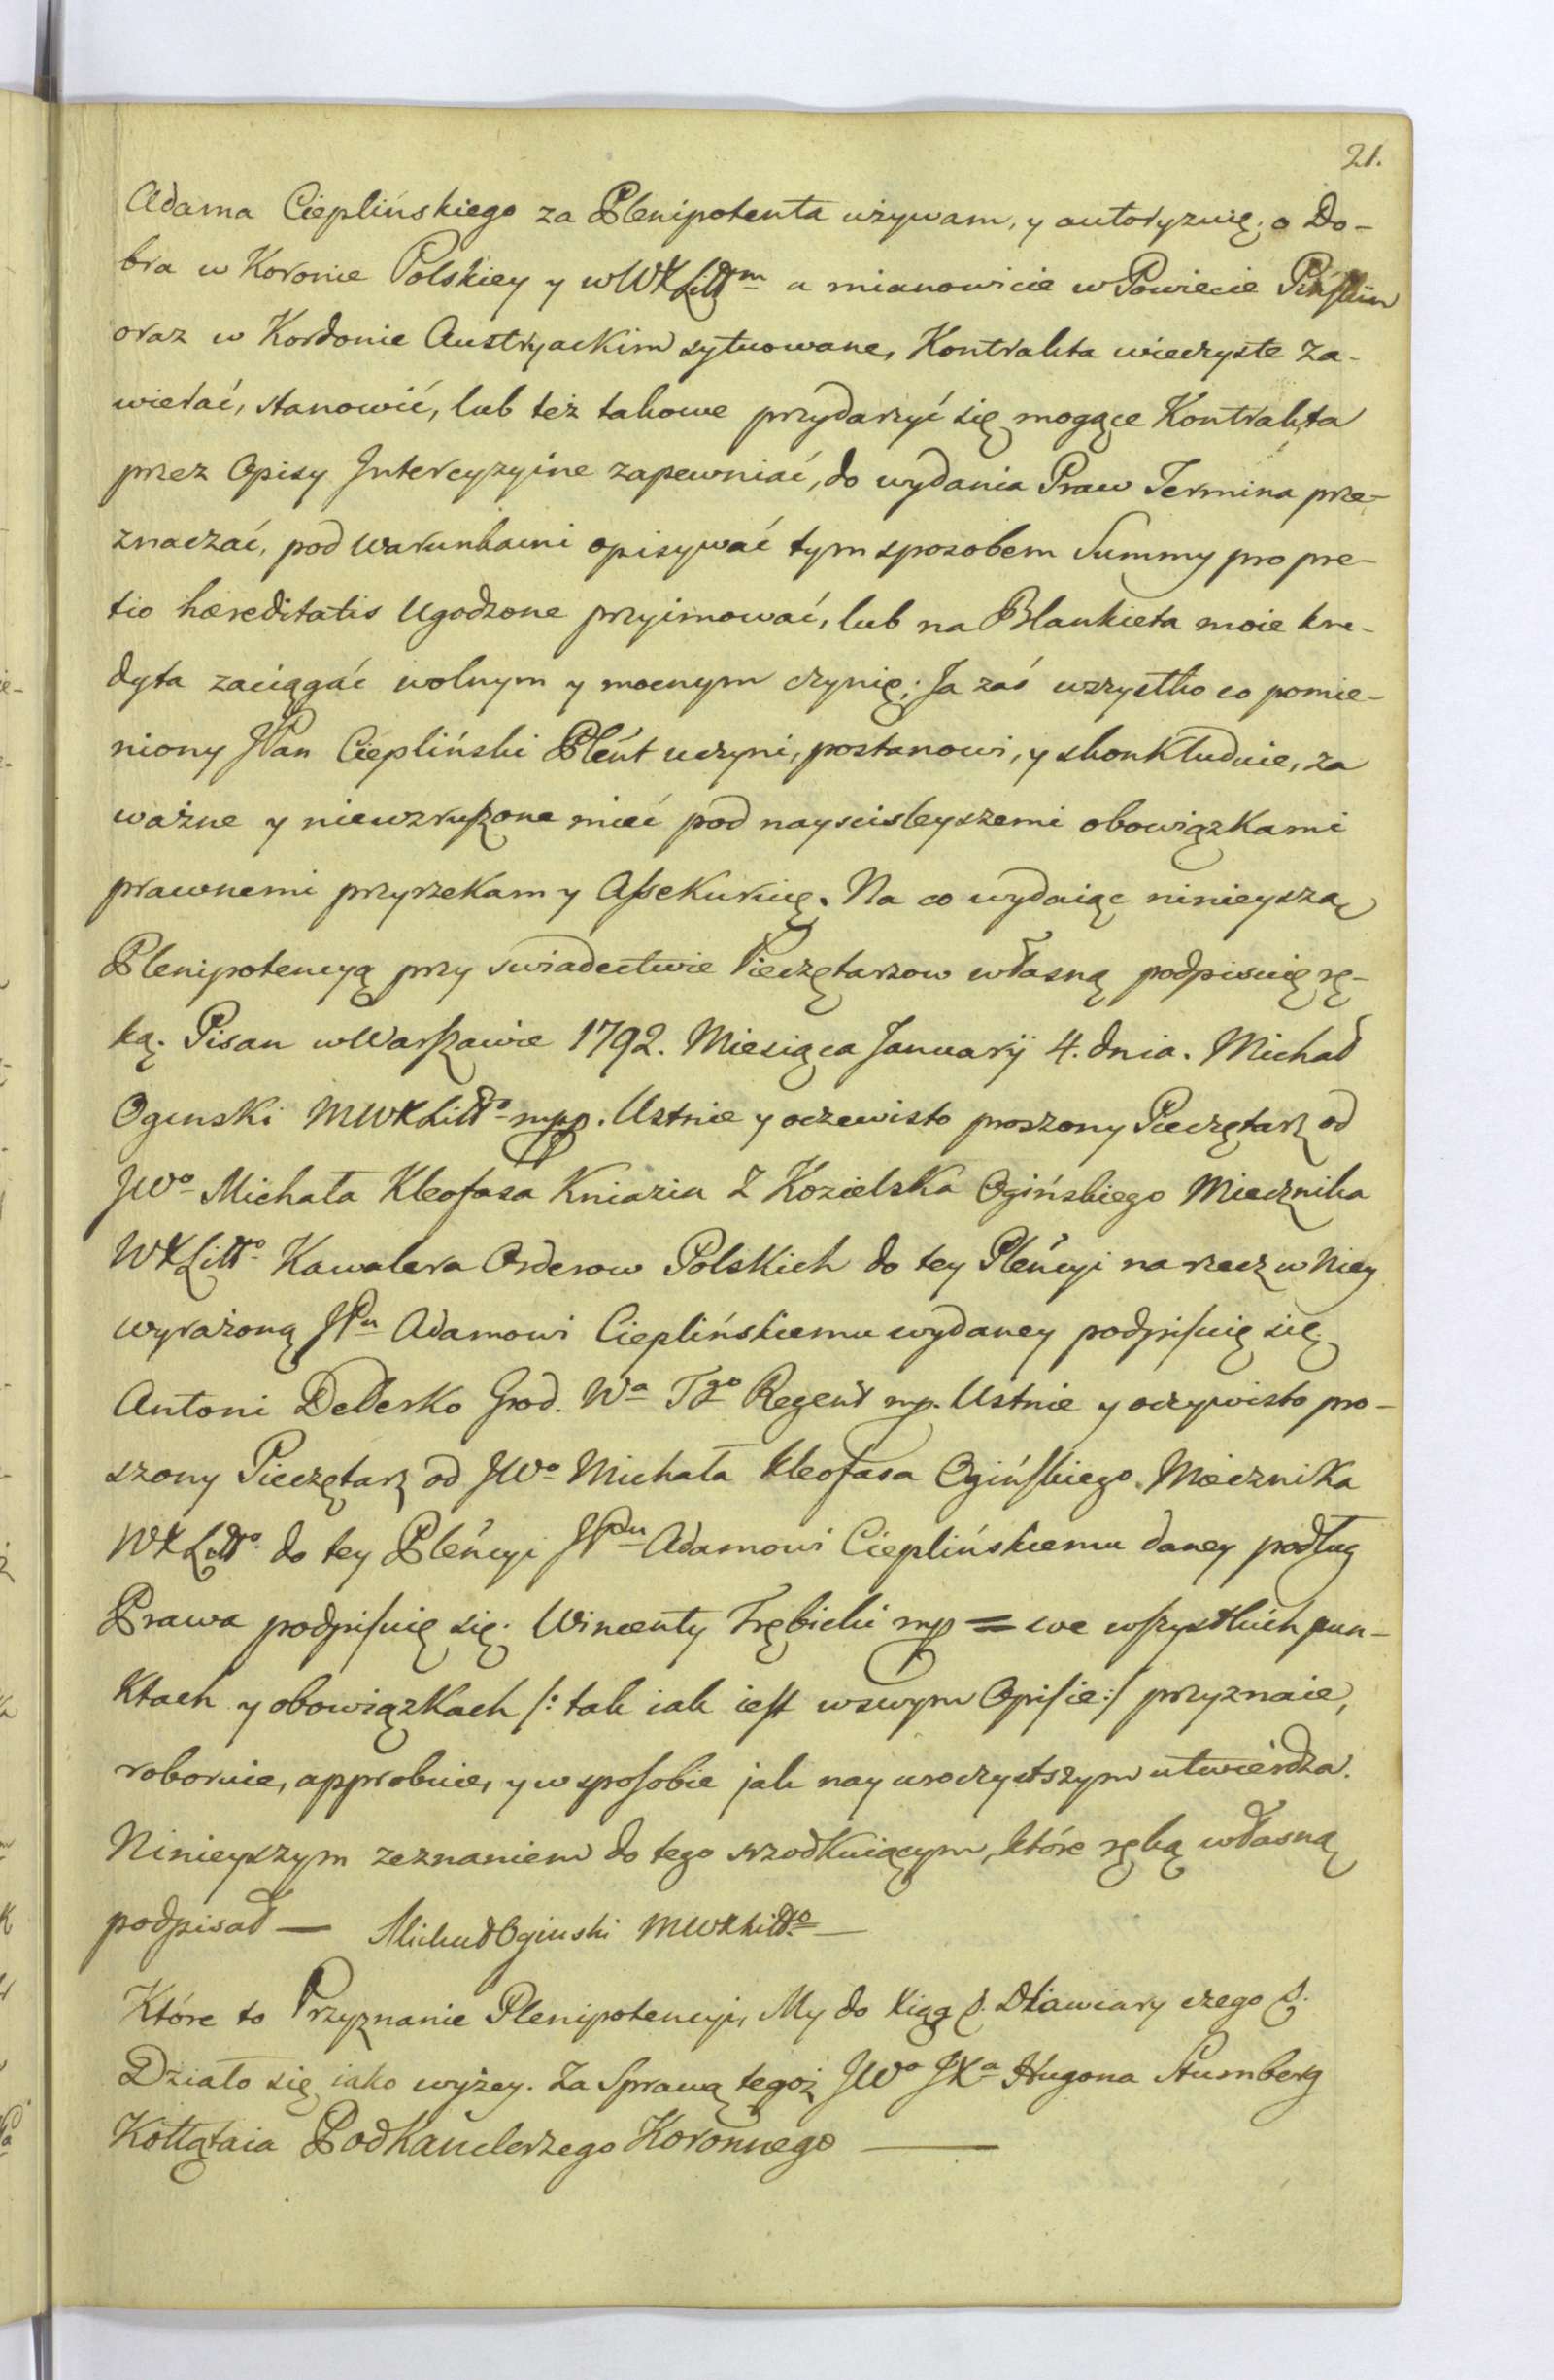 21.
Adama Cieplińskiego za Plenipotenta używam, y autoryzuię, o Do-
bra w Koronie Polskiey y w WXLittm a mianowicie w Powiecie Pińskim
oraz w Kordonie Austryackim sytuowane, Kontrakta wieczyste za-
wierać, stanowić, lub też takowe przydarzyć się mogące Kontrakta
przez Opisy Intercyzyine zapewniać, do wydania Praw Termina prze-
znaczać, pod warunkami opisywać tym sposobem Summy pro pre-
tio hæreditatis Ugodzone przyimować, lub na Blankieta moie kre-
dyta zaciągać wolnym y mocnym czynię; Ja zaś wszystko co pomie-
niony JPan Ciepliński Pleńt uczyni, postanowi, y skonkluduie, za
ważne y niewzruszone mieć pod nayscisleyszemi obowiązkami
prawnemi przyrzekam y Assekuruię. Na co wydaiąc ninieyszą
Plenipotencyą przy swiadectwie Pieczętarzow własną podpisuię rę-
ką. Pisan w Warszawie 1792. Miesiąca Januarij 4. dnia. Michał
Oginski MWXLitto mpp. Ustnie y oczewisto proszony Pieczętarz od
JWo Michała Kleofasa Kniazia Z Kozielska Ogińskiego Miecznika
WXLitto Kawalera Orderow Polskich do tey Pleńcyi na rzecz w Niey
wyrażoną JPu Adamowi Cieplińskiemu wydaney podpisuię się.
Antoni Deberko Grod. Wa Tgo Regent mp. Ustnie y oczywisto pro-
szony Pieczętarz od JWo Michała Kleofasa Ogińskiego Miecznika
WXLitto do tey Pleńcyi JPanu Adamowi Cieplińskiemu daney podług
Prawa podpisuię się. Wincenty Trębicki mp = we wszystkich pun-
ktach y obowiązkach /: tak iak iest w swym Opisie :/ przyznaie,
roboruie, approbuie, y w sposobie jak nayuroczystszym utwierdza.
Ninieyszym zeznaniem do tego srzodkuiącym, które ręką własną
podpisał — Michał Oginski MWXLitto —
Które to Przyznanie Plenipotencyi, My do Xiąg &. Dla wiary czego &.
Działo się iako wyżey. Za Sprawą tegoż JWo JXa Hugona Stumberg
Kołłątaia Podkanclerzego Koronnego —